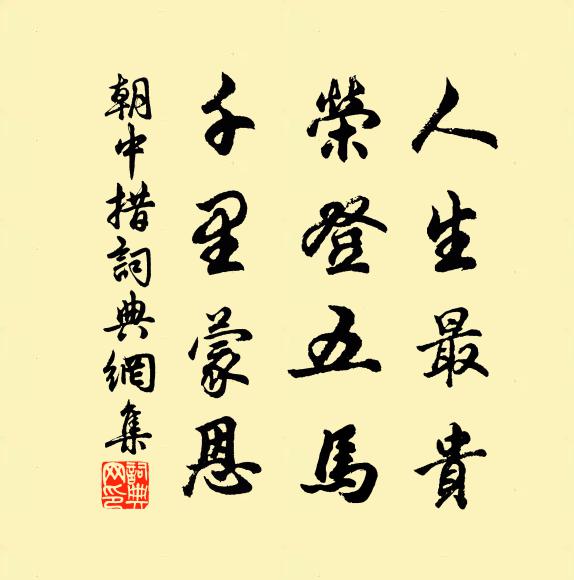 人生最貴
榮登五馬
千里蒙恩
朝中措詞典網集
詞典
网印